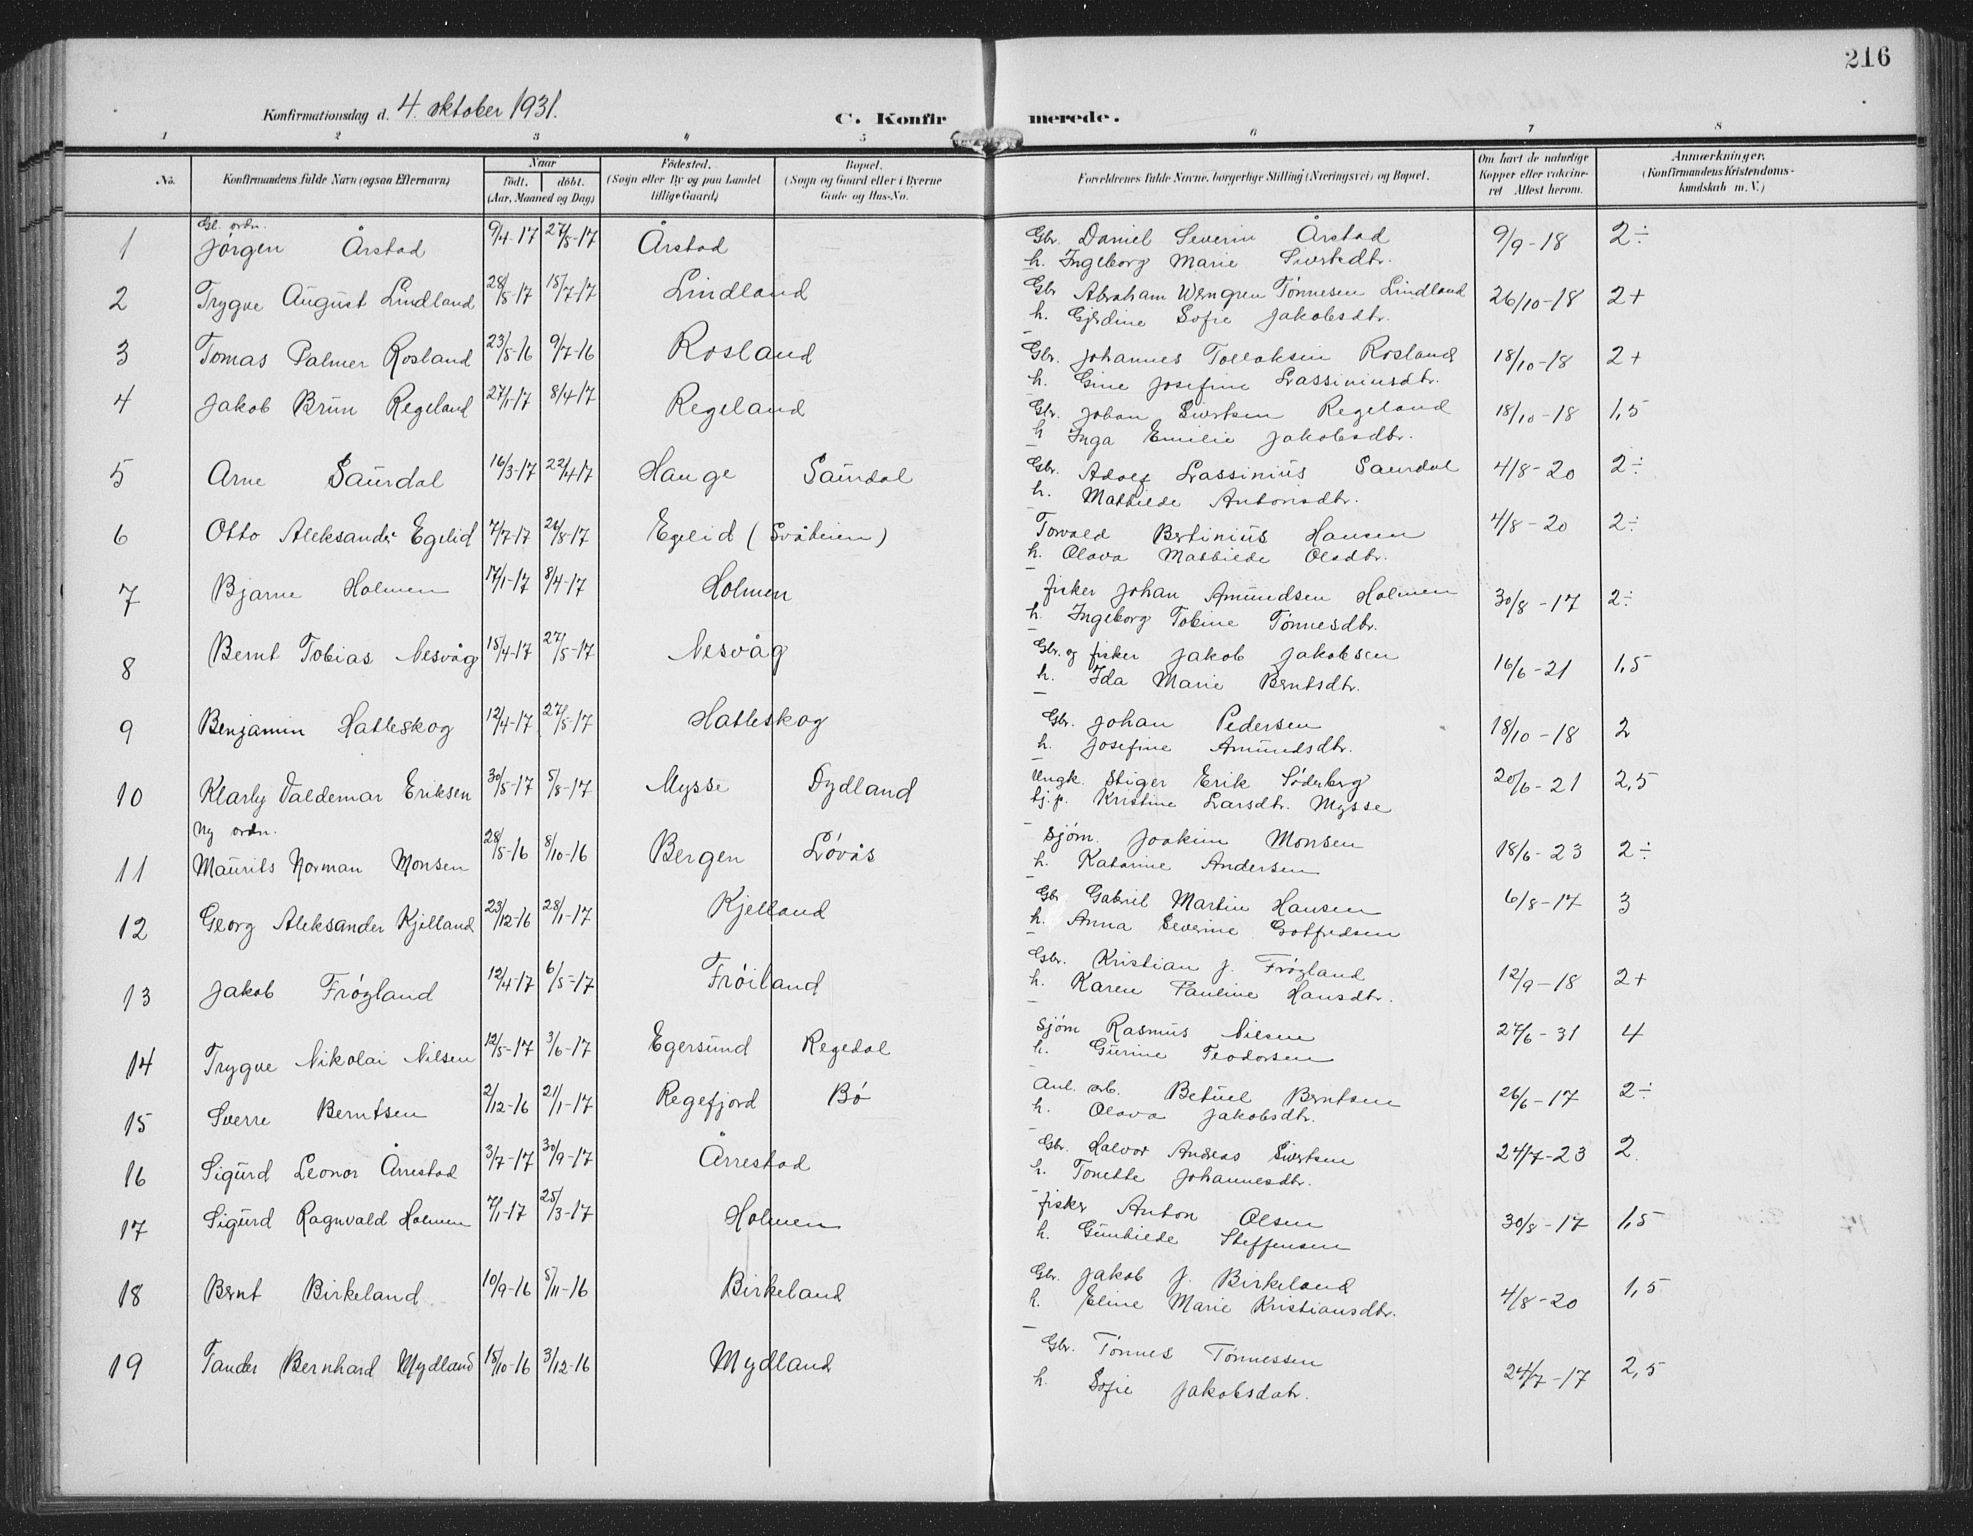 216
Konfirmationsdag d. 4. oktober 1931. C. Konfirmerede.
1 2 3 4 5 6 7 8
No. Konfirmandens fulde Navn (ogsaa Efternavn) Naar født. døbt. (Aar, Maaned og Dag) Födested. (Sogn eller By og paa Landet tillige Gaard) Bopæl. (Sogn og Gaard eller i Byerne Gade og Hus-No. Forældrenes fulde Navne, borgerlige Stilling (Næringsvei) og Bopæl. Om havt de naturlige Kopper eller vaccineret Attest herom. Anmærkninger. (Konfirmandens Kristendomskundskab m. V.)
Gl. ordn.
1 Jørgen Årstad 9/4-17 27/5-17 Årstad Gbr. Daniel Severin Årstad 9/9-18 2÷
h. Ingeborg Marie Sivertsdtr.
2 Trygve August Lindland 28/5-17 15/7-17 Lindland Gbr. Abraham Wengren Tønnesen Lindland 26/10-18 2+
h. Gjerdine Sofie Jakobsdtr.
3 Tomas Palmer Rosland 23/5-16 9/7-16 Rosland Gbr. Johannes Tollaksen Rosland 18/10-18 2+
h. Gine Josefine Lassiniusdtr.
4 Jakob Brun Regeland 27/1-17 8/4-17 Regeland Gbr. Johan Sivertsen Regeland 18/10-18 1,5
h Inga Emilie Jakobsdtr.
5 Arne Saurdal 16/3-17 22/4-17 Hauge Saurdal Gbr. Adolf Lassinius Saurdal 4/8-20 2÷
h. Mathilde Antonsdtr.
6 Otto Aleksander Egelid 7/7-17 26/8-17 Egelid (Svåheien) Torvald Bertinius Hansen 4/8-20 2÷
h. Olava Mathilde Olsdtr.
7 Bjarne Holmen 17/1-17 8/4-17 Holmen fisker Johan Amundsen Holmen 30/8-17 2÷
h. Ingeborg Tobine Tønnesdtr.
8 Bernt Tobias Nesvåg 15/4-17 27/5-17 Nesvåg Gbr. og fisker Jakob Jakobsen 16/6-21 1,5
h. Ida Marie Berntsdtr.
9 Benjamin Hatleskog 12/4-17 27/5-17 Hatleskog Gbr. Johan Pedersen 18/10-18 2
h. Josefine Amundsdtr.
10 Klarly Valdemar Eriksen 30/5-17 5/8-17 Mysse Dydland Ungk. Stiger Erik Söderberg 20/6-21 2,5
tj.p. Kristine Larsdtr. Mysse
Ny ordn.
11 Maurits Norman Monsen 28/5-16 8/10-16 Bergen Løvås Sjøm. Joakim Monsen 18/6-23 2÷
h. Katarine Andersen
12 Georg Aleksander Kjelland 23/12-16 28/1-17 Kjelland Gbr Gabriel Martin Hansen 6/8-17 3
h. Anna Severine Gotfredsen
13 Jakob Frøyland 12/4-17 6/5-17 Frøiland Gbr. Kristian J. Frøyland 12/9-18 2+
h. Karen Pauline Hansdtr.
14 Trygve Nikolai Nilsen 12/5-17 3/6-17 Egersund Regedal Sjøm Rasmus Nilsen 27/6-31 4
h. Gurine Teodorsen
15 Sverre Berntsen 2/12-16 21/1-17 Regefjord Bø Anl. arb. Betuel Berntsen 26/6-17 2÷
h. Olava Jakobsdtr.
16 Sigurd Leonor Årrestad 3/7-17 30/9-17 Årrestad Gbr. Halvor Andreas Sivertsen 24/7-23 2
h. Tonette Johannesdtr.
17 Sigurd Ragnvald Holmen 7/1-17 25/3-17 Holmen fisker Anton Olsen 30/8-17 1,5
h. Gunhilde Steffensen
18 Bernt Birkeland 10/9-16 5/11-16 Birkeland Gbr. Jakob J. Birkeland 4/8-20 1,5
h. Eline Marie Kristiansdtr.
19 Tander Bernhard Mydland 15/10-16 3/12-16 Mydland Gbr. Tønnes Tønnessen 24/7-17 2,5
h. Sofie Jakobsdatr.